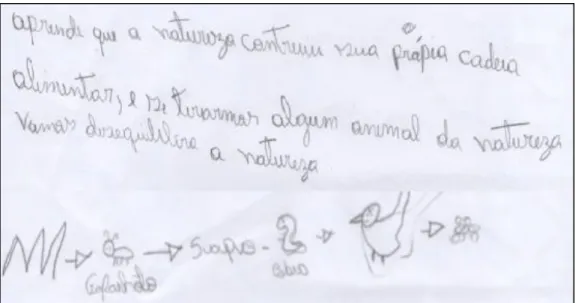 aprende que a natureza contruiu sua própia cadeia
alimentar, e se tirarmos algum animal da natureza
Vamos desequilibra a natureza
Gafanhoto sapo cobra